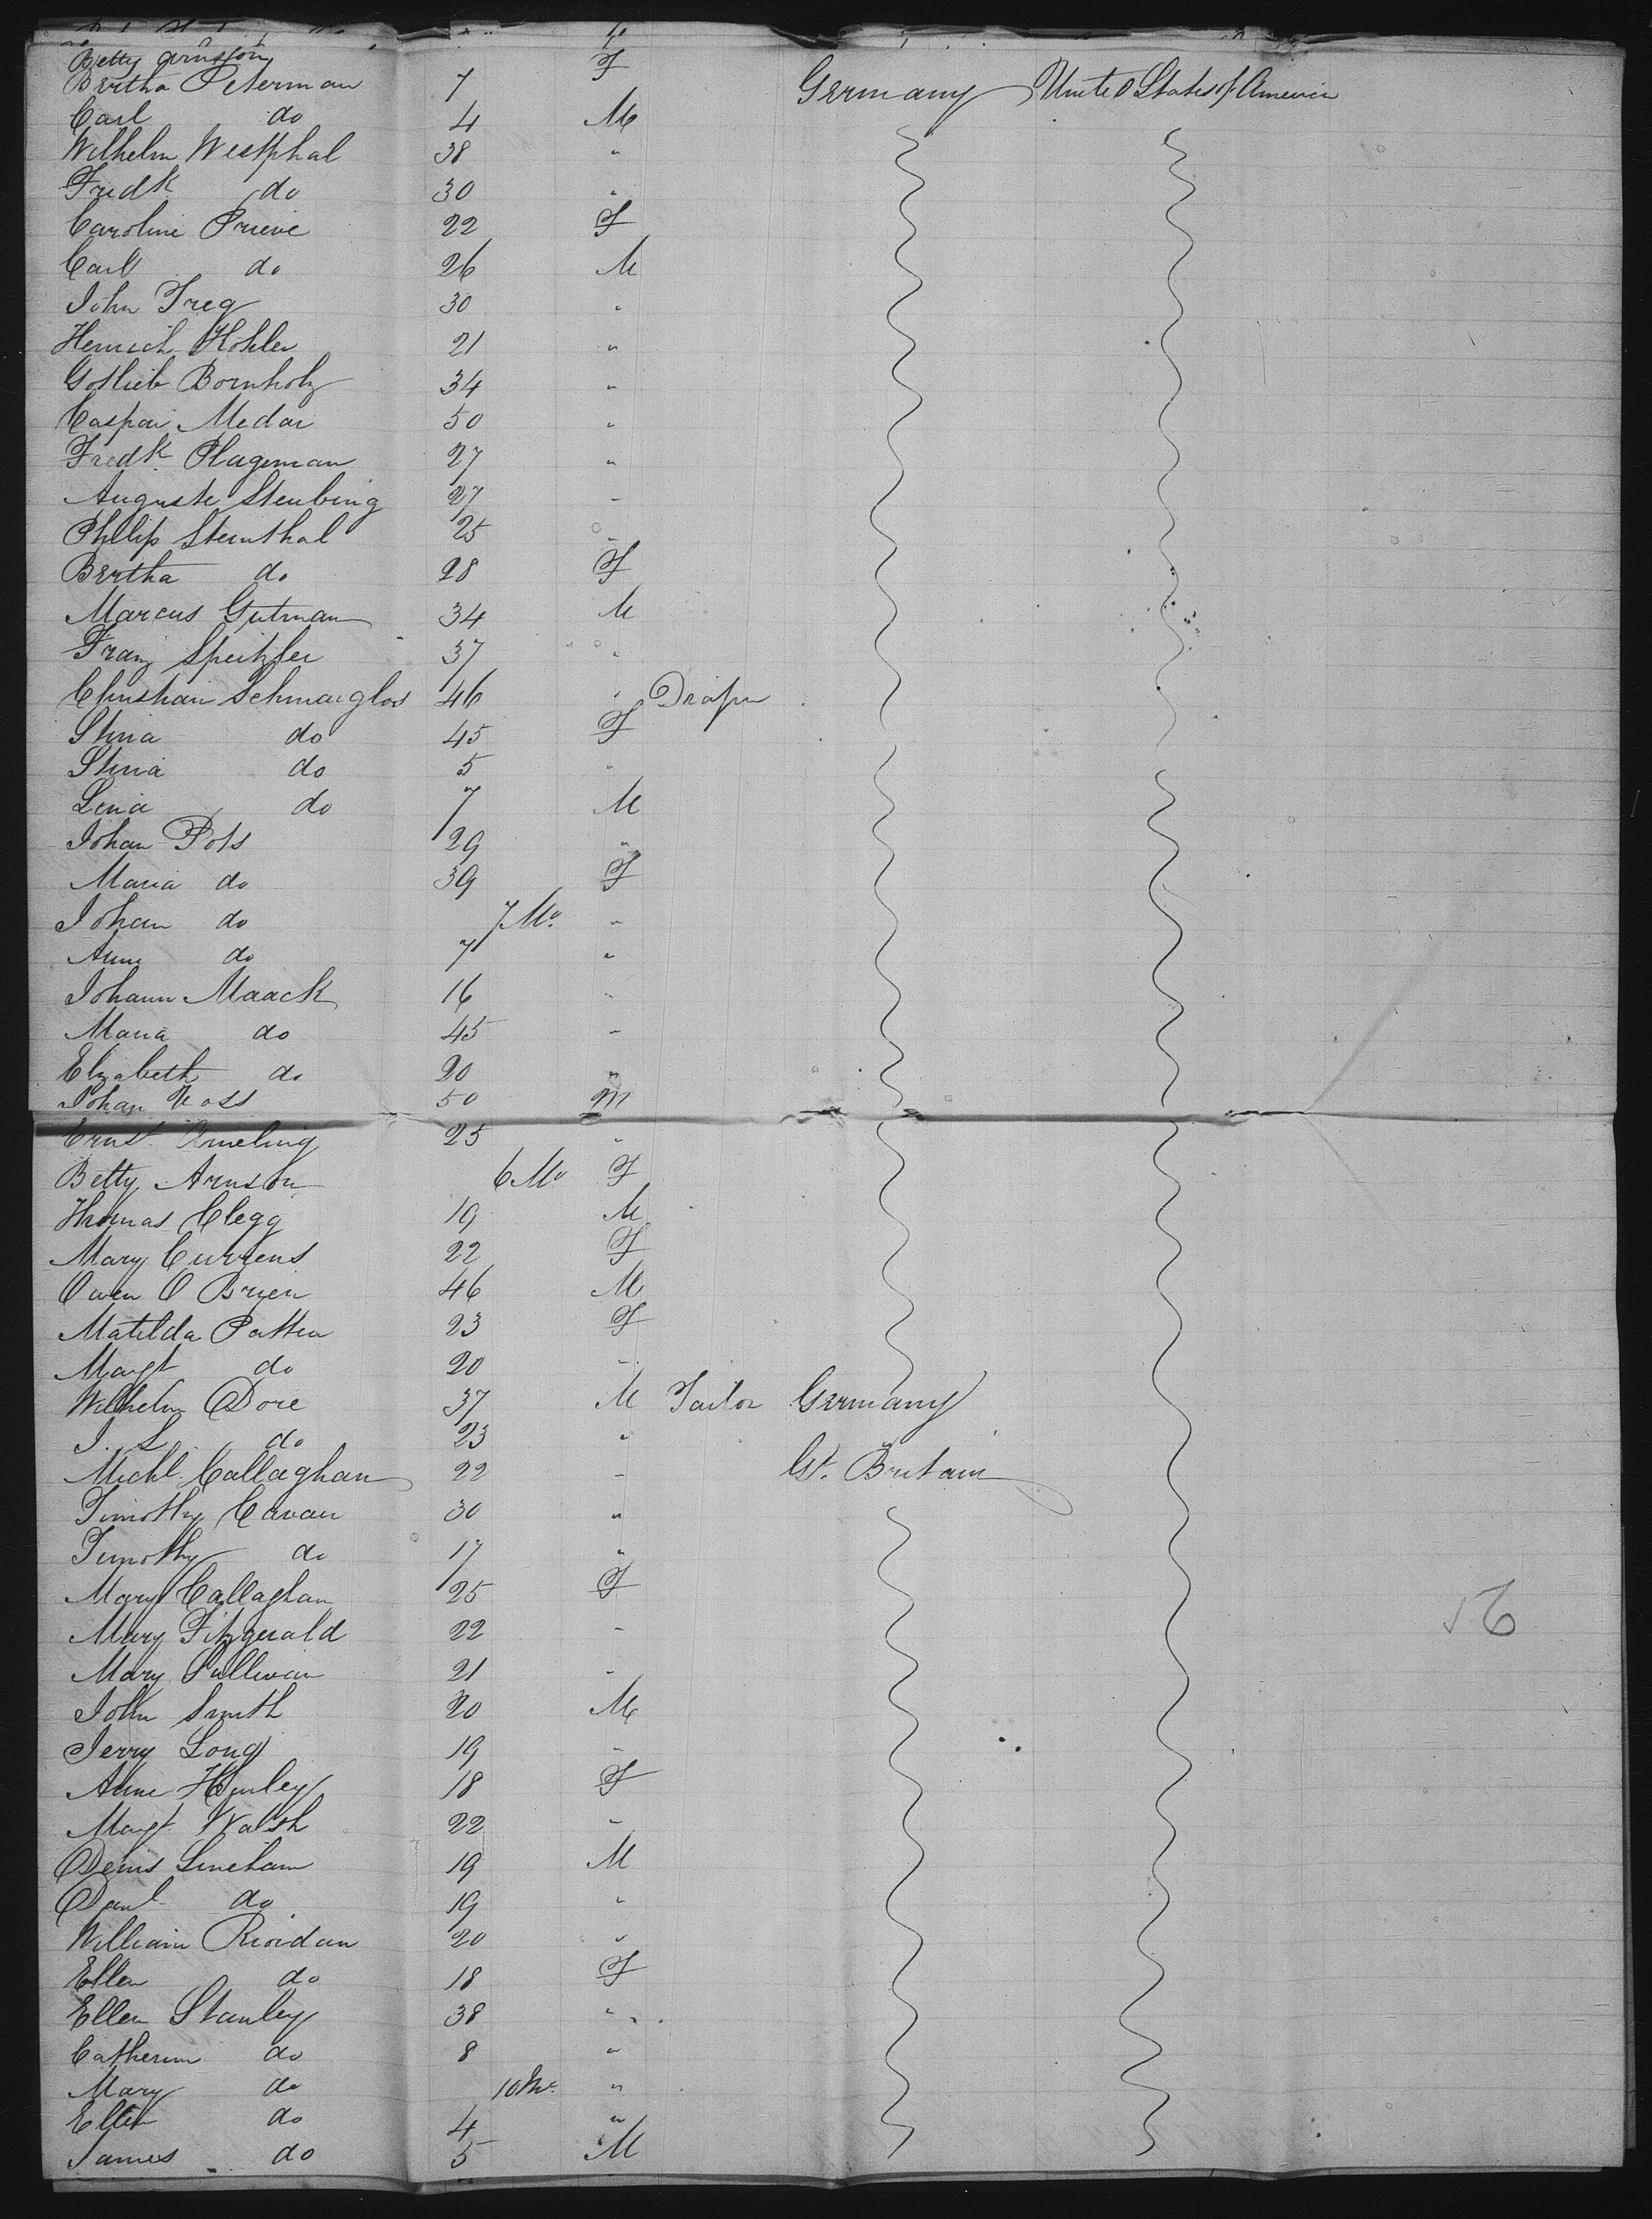 Betty Arnson F
Bertha Peterman 7 Germany United States of America
Carl do 4 M
Wilhelm Westphal 38 "
Fredk do 30 "
Caroline Prieve 22 F
Carl do 26 M
John Freg 30 "
Henrich Kohler 21 "
Gotlieb Bornholz 34 "
Caspar Medar 50 "
Fredk Plageman 27 "
Auguste Steubing 27 "
Philip Steinthal 25 "
Bertha do 28 F
Marcus Gutman 34 M
Franz Speitzler 37 "
Christian Schmaiglos 46 " Draper
Stina do 45 F
Stina do 5 "
Lena do 7 M
Johan Pots 29 "
Maria do 39 F
Johan do 7 Mo. "
Anne do 7 "
Johann Maack 16 "
Maria do 45 "
Elizabeth do 20 "
Johan Voss 50 M
Ernst Ameling 25 "
Betty Arnson 6 Mo F
Thomas Clegg 19 M
Mary Currens 22 F
Owen O Brien 46 M
Matilda Patten 23 F
Margt do 20 "
Wilhelm Dore 37 M Tailor Germany
J. L. do 23 "
Michl. Callaghan 22 " Gt. Britain
Timothy Cavan 30 "
Timothy do 17 "
Mary Callaghan 25 F
Mary Fitzgerald 22 "
Mary Sullivan 21 "
John Smith 20 M
Jerry Long 19 "
Anne Hurley 18 F
Margt Walsh 22 "
Denis Lineham 19 M
Danl do 19 "
William Riordan 20 "
Ellen do 18 F
Ellen Stanley 38 "
Catherine do 8 "
Mary do 10 Mo. "
Ellen do 4 "
James do 5 M